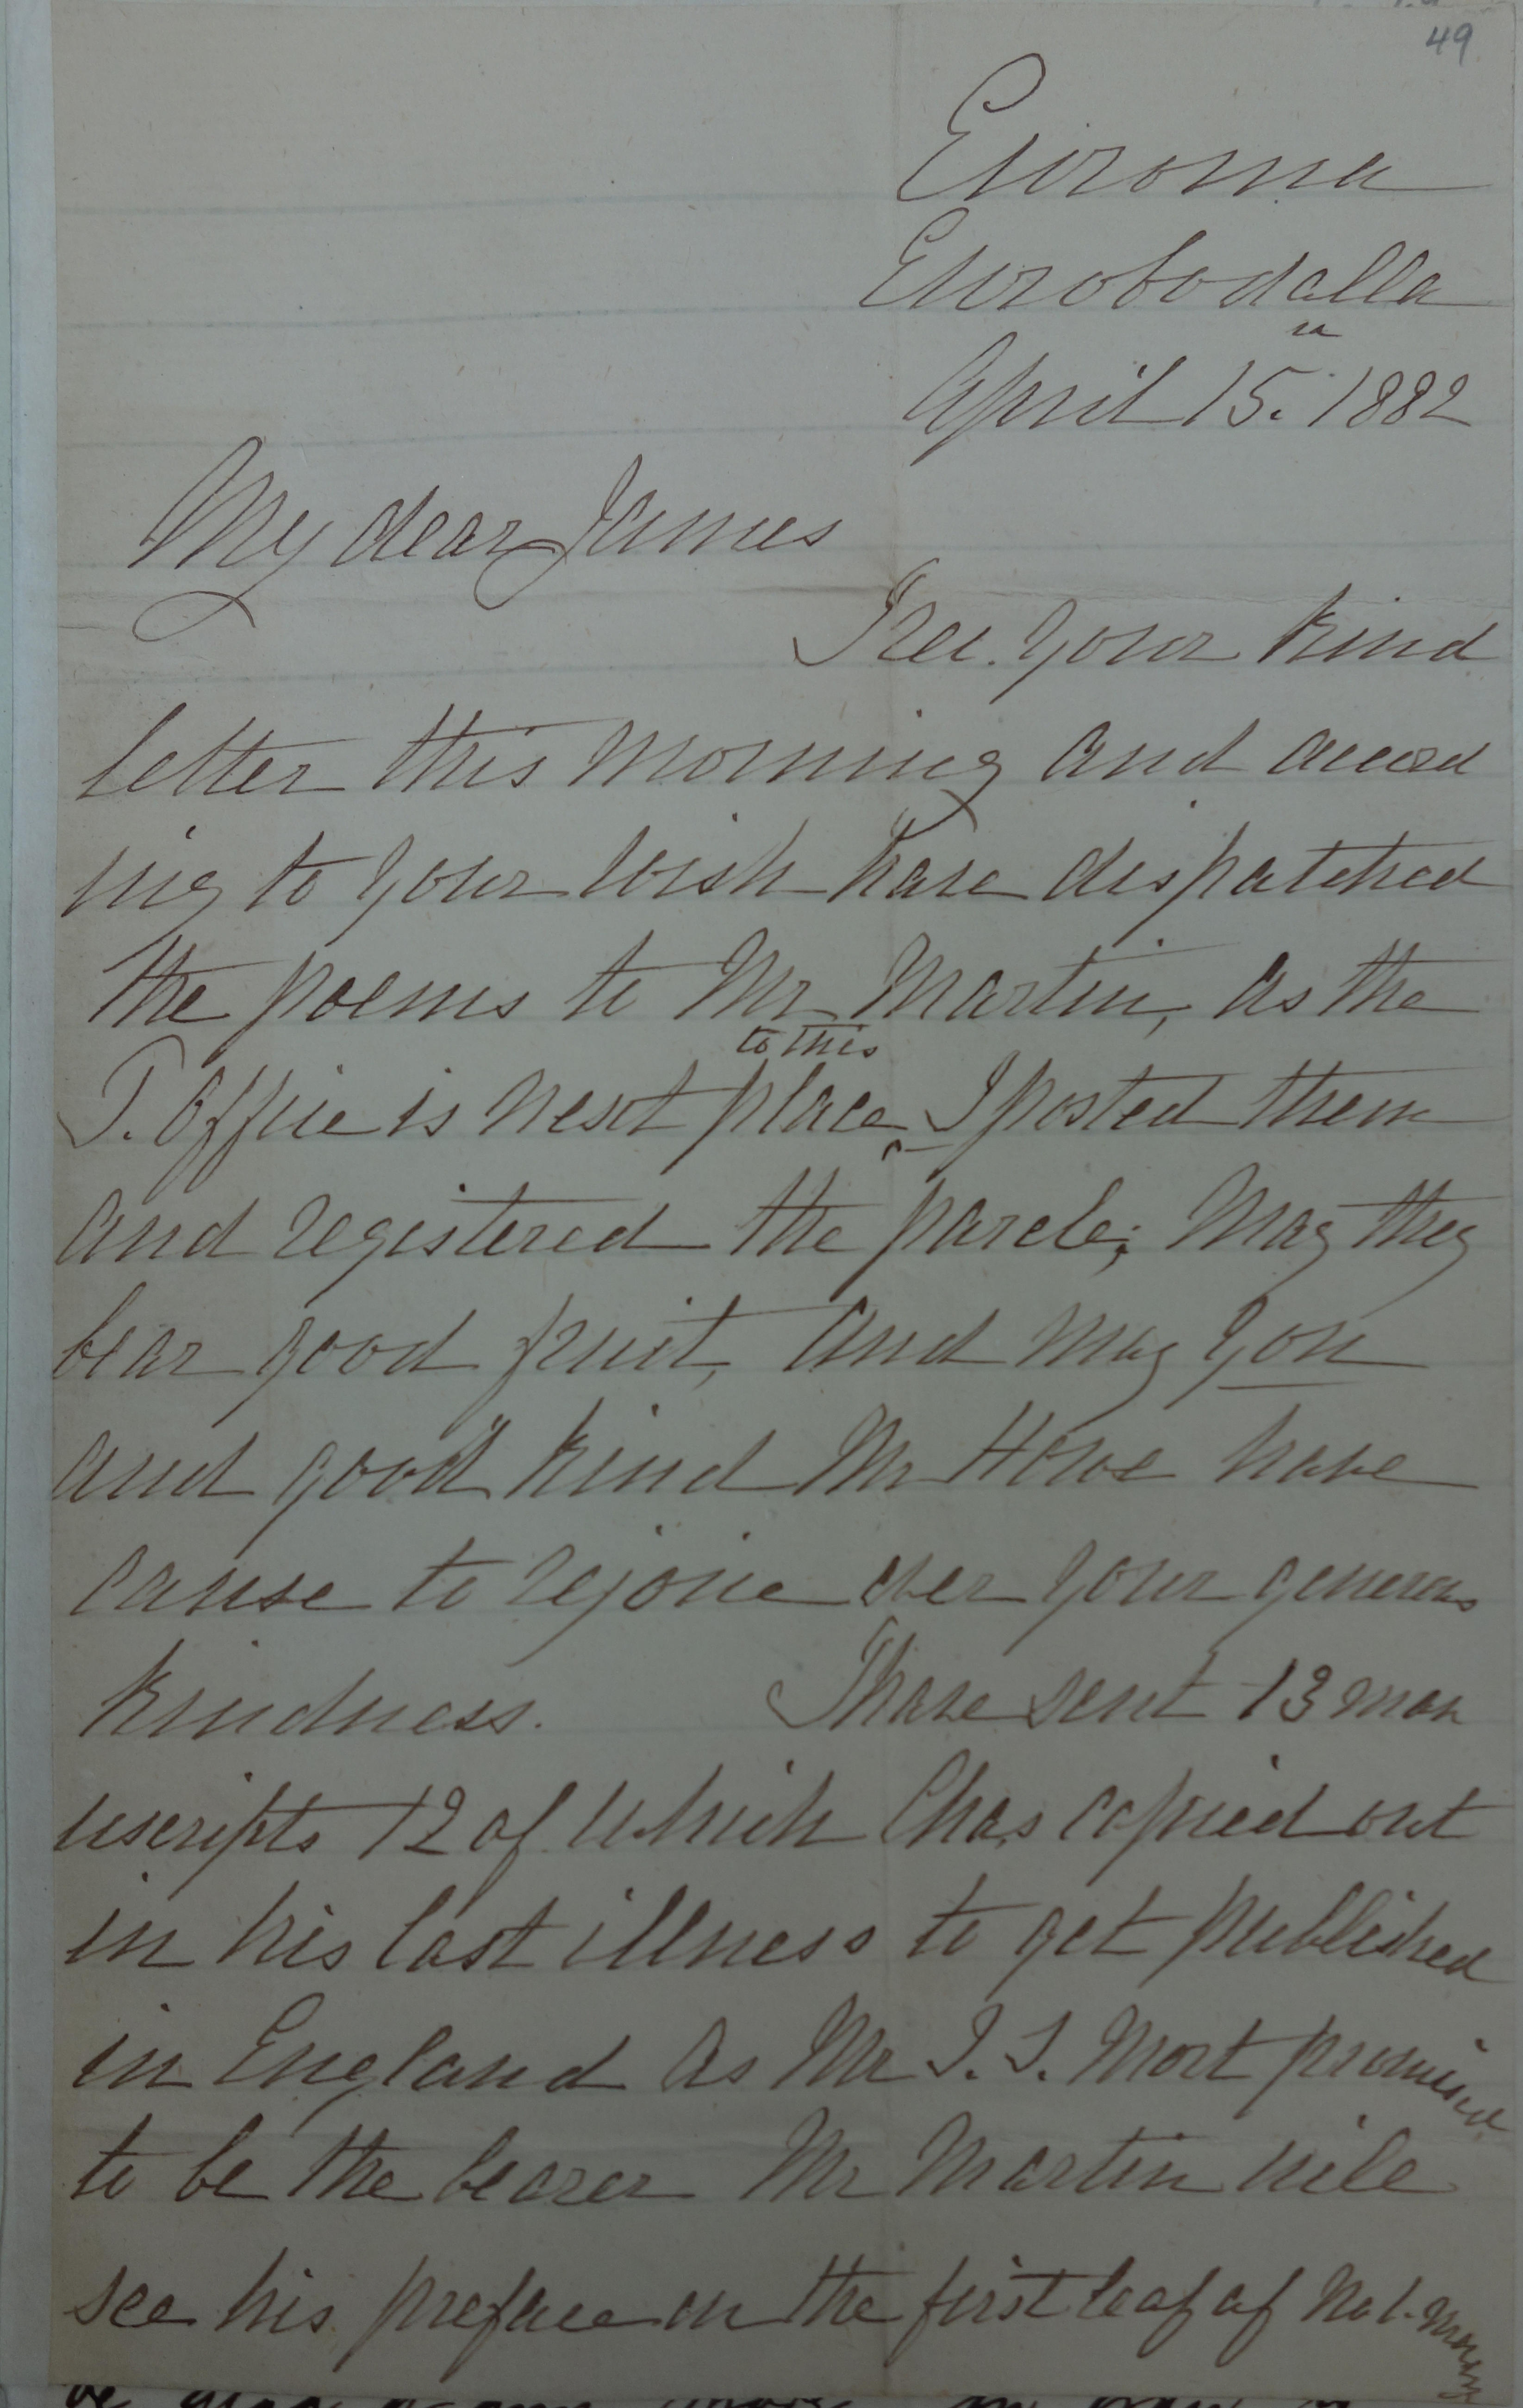 49
Euroma
Eurobodalla
April 15. 1882
My dear James
I rec. your kind
letter this morning and accord
ing to your wish have dispatched
the poems to Mr Martin, as the
to this
P. Office is next place I posted them
and registered the parcle; may they
bear good fruit, and may you
and good kind Mr Howe have
cause to rejoice over your generous
kindness. I have sent 13 man
uscripts 12 of which Chas copied out
in his last illness to get published
in England as Mr T. S. Mort promised
to be the bearer Mr Martin will
see his preface on the first leaf of No 1.